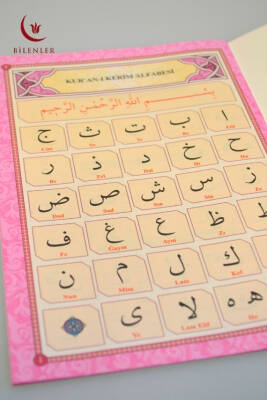 BİLENLER
KUR'AN-I KERİM ALFABESİ
بِسْمِ اللّٰهِ الرَّحْمٰنِ الرَّحِيمِ
ا ب ت ث ج
Elif Be Te Se Cim
ح خ د ذ ر
Ha Hı Dal Zel Re
ز س ش ص ض
Ze Sin Şın Sad Dad
ط ظ ع غ ف
Tı Zı Ayn Gayın Fe
ق ك ل م ن
Kef Lam Mim Nun
و ه لا ى
He Lam Elif Ye
1